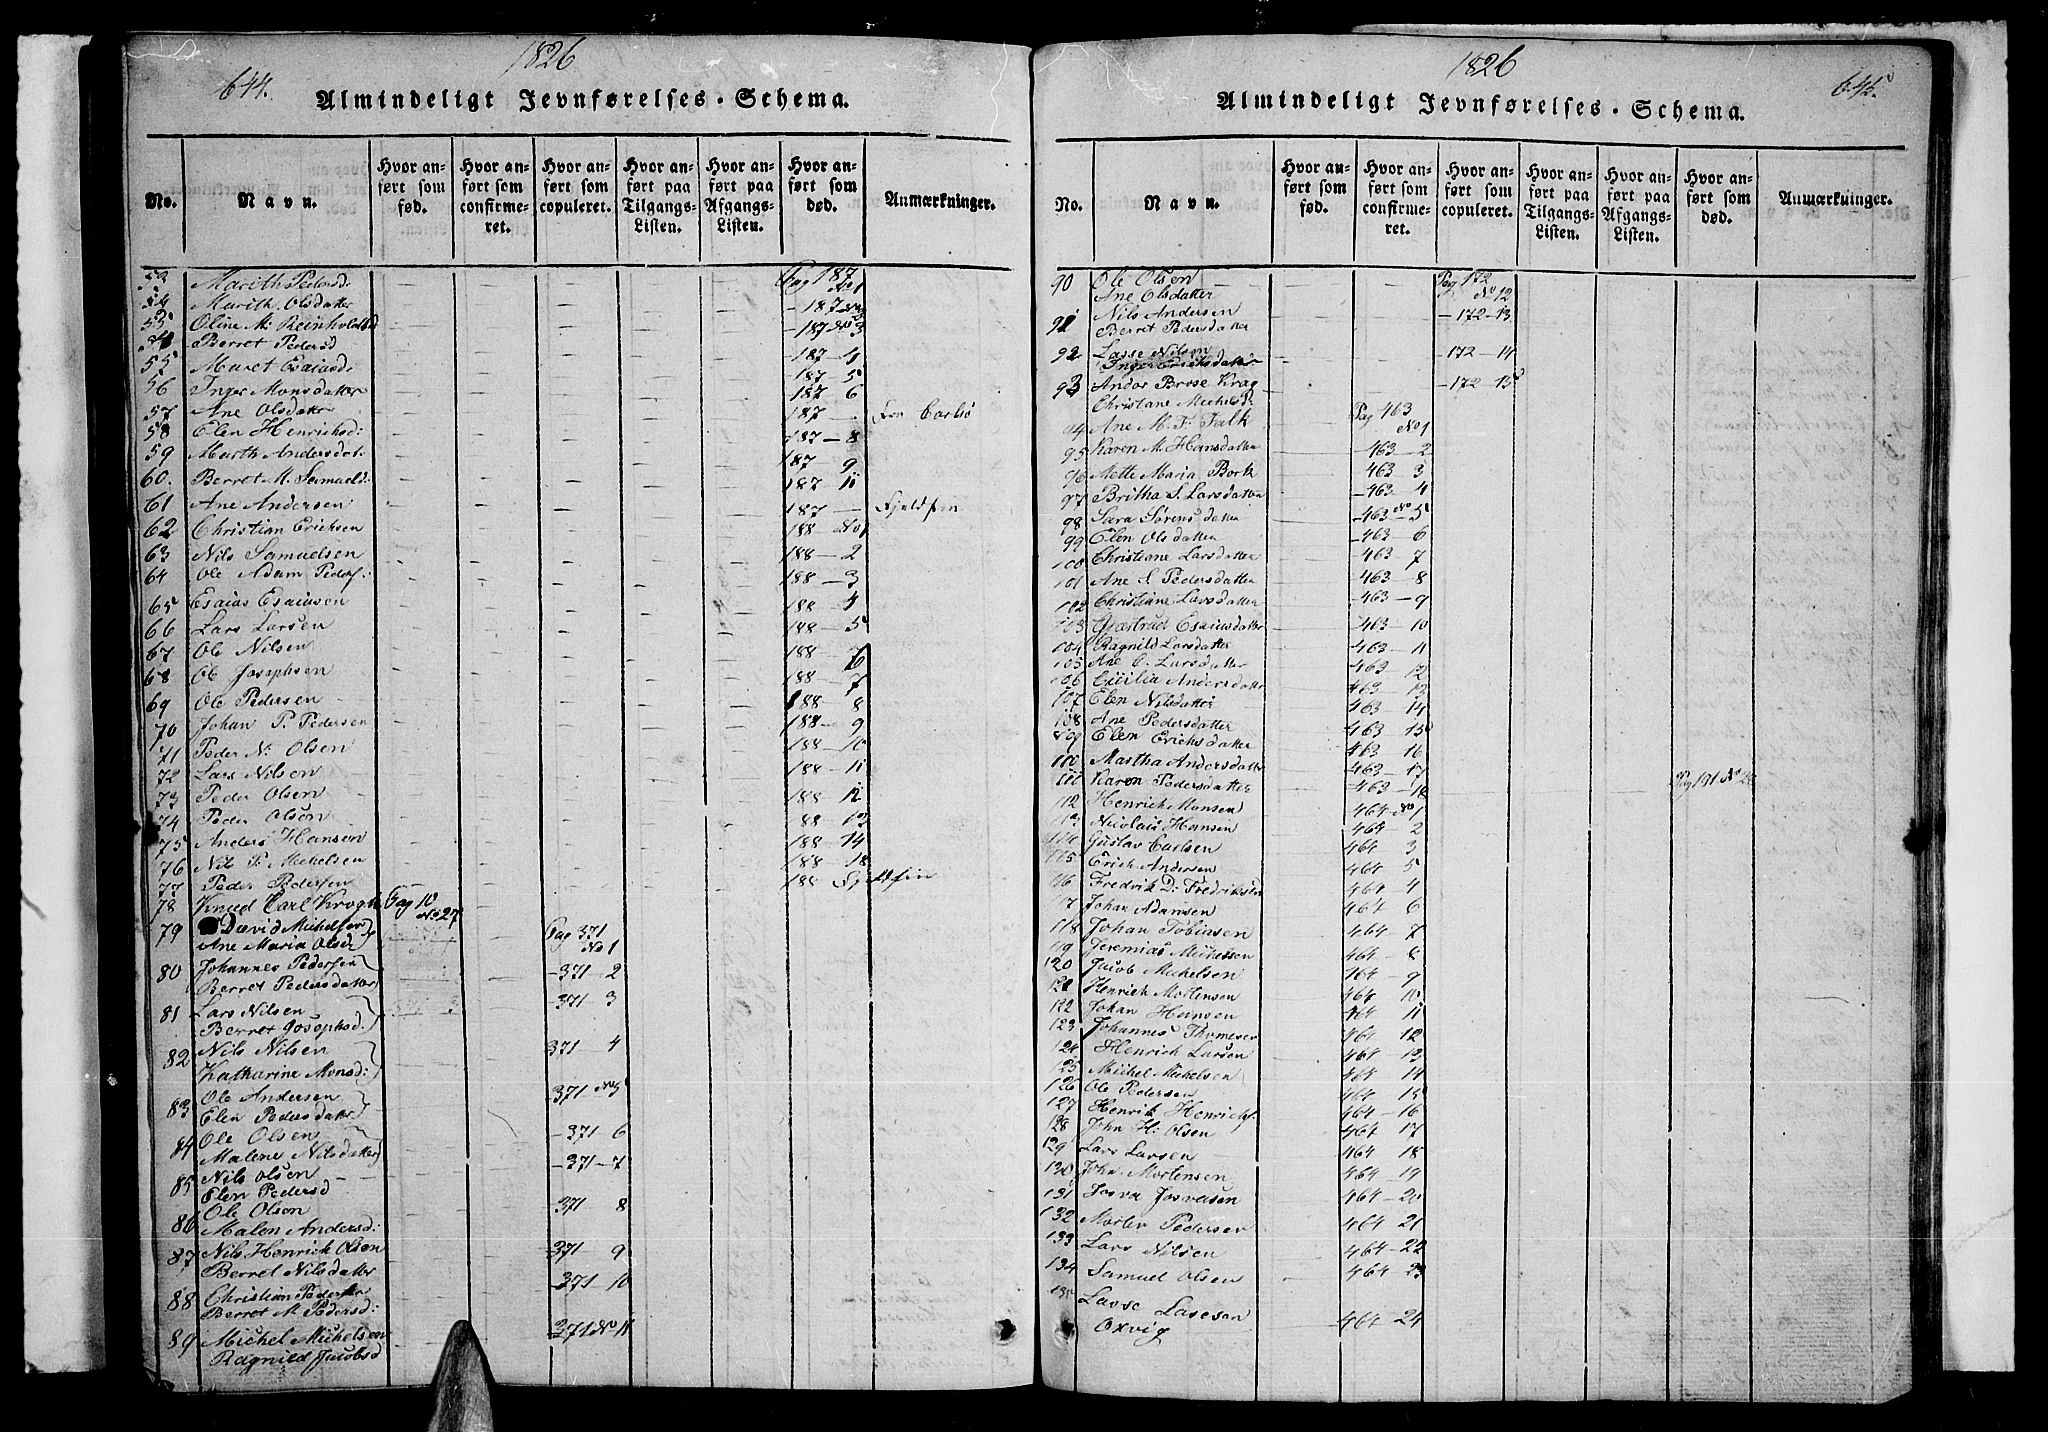 644.
1826
Almindeligt Jevnførelses-Schema.
No.
Navn.
Hvor anført som fød.
Hvor anført som confirmeret.
Hvor anført som copuleret.
Hvor anført paa Tilgangs-Listen.
Hvor anført paa Afgangs-Listen.
Hvor anført som død.
Anmærkninger.
53 Marith Pedersd: Pag 187 No 1
54 Marith Olsdatter - 187 No 2
53 Oline M: Reinholdtsd - 187 No 3
54 Berret Pedersd 187 - 4
55 Maret Esaiasd: 187 - 5
56 Inger Monsdatter 187 6
57 Ane Olsdatter 187
58 Elen Henrichsd: 187 - 8
59 Marth Andersdat: 187 9
60. Berret M. Samuelsd: 187 11
61 Ane Andersen 187 - Fieldfin
62 Christian Ericksen 188 No 1
63 Nils Samuelsen 188 - 2
64 Ole Adam Peders: 188 - 3
65 Esaias Esaiasen 188 4
66 Lars Larsen 188 - 5
67 Ole Nilsen 188 - 6
68 Ole Josephsen 188 - 7
69 Ole Pedersen 188 - 8
70 Johan P. Pedersen 188 - 9
71 Peder N: Olsen 188 - 10
72 Lars Nilsen 188 - 11
73 Peder Olsen 188 - 12
74 Peder Olsen 88 - 13
75 Anders Hansen 188 - 14
76 Nils P. Michelsen 188 - 18
77 Peder Pedersen 188 Fieldfin
78 Knud Carl Krogh Pag 10 No 27
79 David Michelsen
Ane Maria Olsd Pag 371 No 1
80 Johannes Pedersen
Berret Pedersdatter - 371 - 2
81 Lars Nilsen
Berret Josephsd: - 371 - 3
82 Nils Nilsen
Katharine Monsd: 371 - 4
83 Ole Andersen
Elen Pedersdatter 371 No 5
84 Ole Olsen
Malene Nilsdatter - 371 6
85 Nils Olsen
Elen Pedersd - 371 - 7
86 Ole Olsen
Malen Andersd: 371 8
87 Nils Henrich Olsen
Berret Nilsdatter 371 9
88 Christian Pedersen
Berret M Pedersd: 371 10
89 Michel Michelsen
Ragnild Jacobsd 371 No 11
1826
645.
Almindeligt Jevnførelses-Schema.
No.
Navn.
Hvor anført som fød.
Hvor anført som confirmeret.
Hvor anført som copuleret.
Hvor anført paa Tilgangs-Listen.
Hvor anført paa Afgangs-Listen.
Hvor anført som død.
Anmærkninger.
90 Ole Olsen
Ane Olsdatter Pag 172 No 12
91 Nils Andersen
Berret Pedersdatter - 172 - 13
92 Lasse Nilsen
Inger Ericksdatter - 172 - 14
93 Andor Brose Krag
Christane Michelsd: - 172 - 15
94 Ane M. F. Falk Pag 463 No 1
95 Karen M. Hansdatter - 463 - 2
96 Mette Maria Bork 463 3
97 Britha S. Larsdatter - 463 4
98 Sara Sørensdatter - 463 No 5
99 Elen Olsdatter - 463 6
100 Christiane Larsdatter - 463 7
101 Ane S. Pedersdatter - 463 - 8
102 Christiane Larsdatter - 463 - 9
103 Giertrud Esaiasdatter - 463 - 10
104 Ragnild Larsdatter 463 - 11
105 Ane C. Larsdatter 463 - 12
106 Cicilia Andersdatter 463 - 13
107 Elen Nilsdatter 463 - 14
108 Ane Pedersdatter 463 15
109 Elen Ericksdatter 463 - 16
110 Martha Andersdatter 463 - 17
111 Karen Pedersdatter 463 - 18 Pag 191 No 26
112 Henrich Monsen 464 No 1
113 Nicolai Hansen 464 - 2
114 Gustav Carlsen 464 3
115 Erich Andersen 464 5
116 Fredrik D: Fredriksen 464 4
117 Johan Adamsen 464 6
118 Johan Tobiasen 464 7
119 Jeremias Michelsen 464 - 8
120 Jacob Michelsen 464 - 9
121 Henrich Mortensen 464 10
122 Johan Hansen 464 11
123 Johannes Thomesen 464 12
124 Henrich Larsen 464 - 13
125 Michel Michelsen 464 14
126 Ole Pedersen 464 15
127 Henrik Henrichs: 464 - 16
128 John H: Olsen 464 - 17
129 Lars Larsen 464 18
130 John Mortensen 464 - 19
131 Josva Josvasen 464 - 20
132 Morten Pedersen 464 - 21
133 Lars Nilsen 464 - 22
134 Samuel Olsen 464 - 23
135 Lasse Lassesen
Oxvig 464 - 24